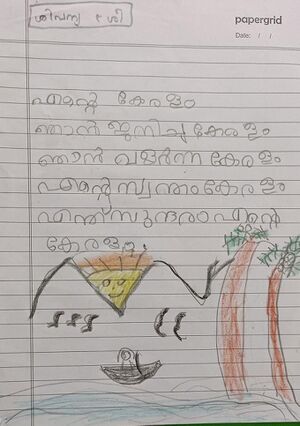 ശിവന്യ 1 ശ്രീ
papergrid
Date: / /
എന്റെ കേരളം
ഞാൻ ജനിച്ച കേരളം
ഞാൻ വളർന്ന കേരളം
എന്റെ സ്വന്തം കേരളം
എന്ത് സുന്ദരം എന്റെ
കേരളം